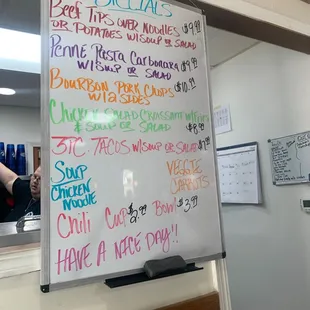 SPECIALS
Beef Tips over Noodles $9.99
or Potatoes w/Soup or Salad
Penne Pasta Carbonara $9.99
w/Soup or Salad
Bourbon Pork Chops $10.99
w/2 Sides
Chicken Salad Croissant w/Fries
& Soup or Salad $8.99
3pc. Tacos w/Soup or Salad $7.99
Soup
Chicken
Noodle
Veggie
Carrots
Chili Cup $2.99 Bowl $3.99
Have A Nice Day!!